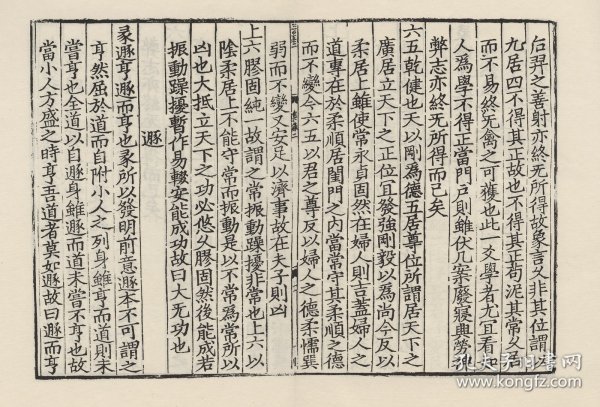 后羿之善射亦終无所得故象言久非其位謂以
九居四不得其正故也不得其正苟泥其常久
而不易終无禽之可獲也此一爻學者尤宜看如
人爲學不得正當門戶則雖伏几案廢寢與勞
弊志亦終无所得而已矣
六五乾健也天以剛爲德五居尊位所謂居天下之
廣居立天下之正位宜發強剛毅以爲尚今反以
柔居上雖使常永貞固然在婦人則吉蓋婦人之
道專在於柔順居閨門之内當常守其柔順之德
而不變今六五以君之尊反以婦人之德柔懦巽
弱而不變又安足以濟事故在夫子則凶
上六膠固純一故謂之常振動躁擾非常也上六以
陰柔居上不能守常而振動是以不常爲常所以
凶也大抵立天下之功必悠久膠固然後能成若
振動躁擾暫作易輟安能成功故曰大无功也
遯
彖遯亨遯而亨也彖所以發明前意遯本不可謂之
亨然屈於道而自附小人之列身雖亨而道則未
嘗亨也全道以自遯身雖遯而道未嘗不亨也故
當小人方盛之時亨吾道者莫如遯故曰遯而亨
孔夫子旧书网
www.kongfz.com